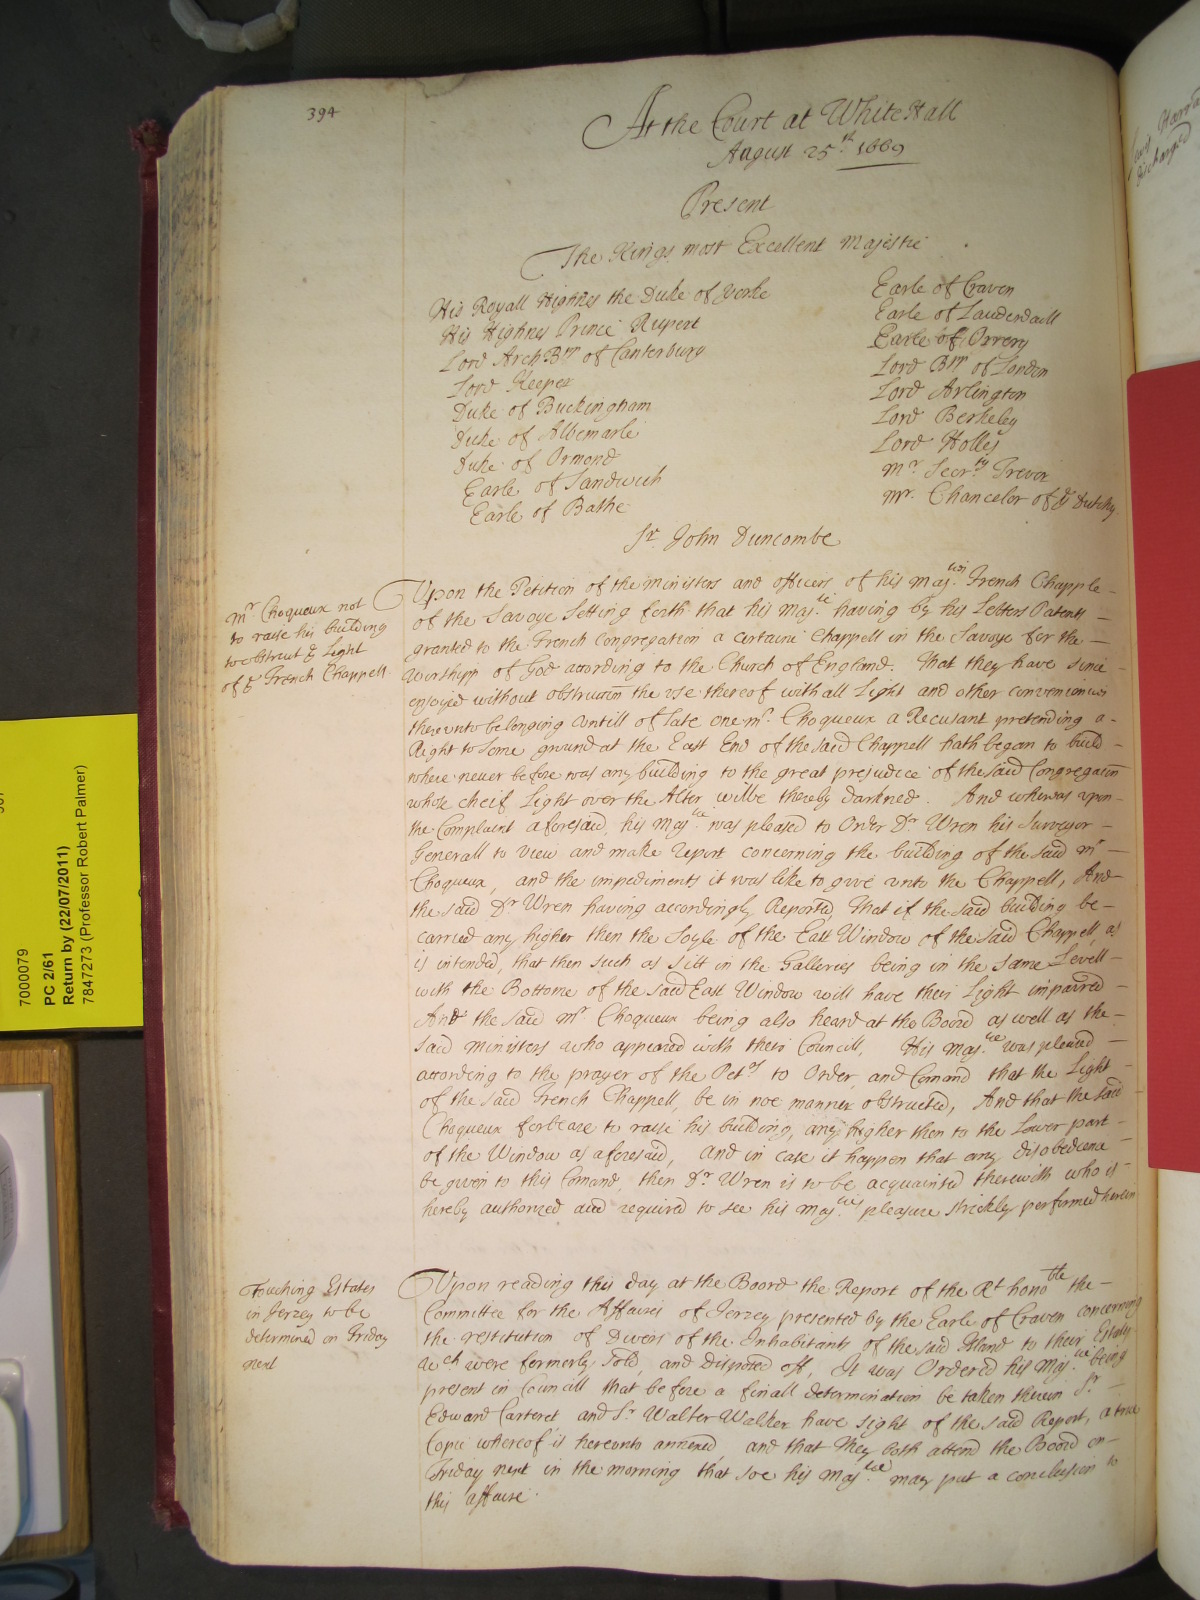 394
At the Court at White Hall
August 25th 1669
Present
The Kings most Excellent Majestie
His Royall Highnes the Duke of Yorke
His Highnes Prince Rupert
Lord ArchBpp of Canterbury
Lord Keeper
Duke of Buckingham
Duke of Albemarle
Duke of Ormond
Earle of Sandwich
Earle of Bathe
Earle of Craven
Earle of Lauderdaill
Earle of Orrery
Lord Bpp of London
Lord Arlington
Lord Berkeley
Lord Holles
Mr. Secrty Trevor
Mr. Chancelor of ye Dutchy
Sr. John Duncombe
Mr Choqueux not
to raise his building
to obstruct ye Light
of ye French Chappell
Upon the Petition of the Ministers and officers of his Majties French Chapple
of the Savoye Setting forth that his Majtie having by his Letters Patents
granted to the French Congregation a certaine Chappell in the Savoye for the
Worshipp of God according to the Church of England. That they have since
enjoyed without obstruccon the use thereof with all Light and other conveniencies
thereunto belonging untill of late one Mr. Choqueux a Recusant pretending a
Right to some ground at the East End of the said Chappell hath began to build
where never before was any building to the great prejudice of the said Congregacon
whose cheif Light over the Alter wilbe thereby darkned. And whereas upon
the Complaint aforesaid, his Majtie was pleased to Order Dr. Wren his Surveyor
Generall to view and make report concerning the building of the said Mr
Choqueux, and the impediments it was like to give unto the Chappell, And
the said Dr Wren having accordingly Reported, That if the said building be
carried any higher then the Soyle of the East Window of the said Chappell, as
is intended, that then such as sitt in the Galleries being in the same Levell
with the Bottome of the said East Window will have their Light impaired
And the said Mr. Choqueux being also heard at the Board as well as the
said Ministers who appeared with their Councill, His Majtie was pleased
according to the prayer of the Petrs to Order and Comand that the Light
of the said French Chappell, be in noe manner obstructed, And that the said
Choqueux forbeare to raise his building, any higher then to the Lower part
of the Window as aforesaid, and in case it happen that any disobedience
be given to this Comand, then Dr. Wren is to be acquainted therewith who is
hereby authorized and required to see his Majties pleasure strickly performed herein
Touching Estates
in Jerzey to be
determined on Friday
next
Upon reading this day at the Board the Report of the Rt honoble the
Committee for the Affaires of Jerzey presented by the Earle of Craven concerning
the restitution of Divers of the Inhabitants of the said Island to their Estates
wch were formerly Sold, and Disposed off, It was Ordered his Majtie being
present in Councill that before a finall determination be taken therein Sr.
Edward Carteret and Sr. Walter Walker have sight of the said Report, a true
Copie whereof is hereunto annexed and that they both attend the Board on
Friday next in the morning that soe his Majtie may put a conclusion to
this affaire.
7000079
PC 2/61
Return by (22/07/2011)
7847273 (Professor Robert Palmer)
discharged